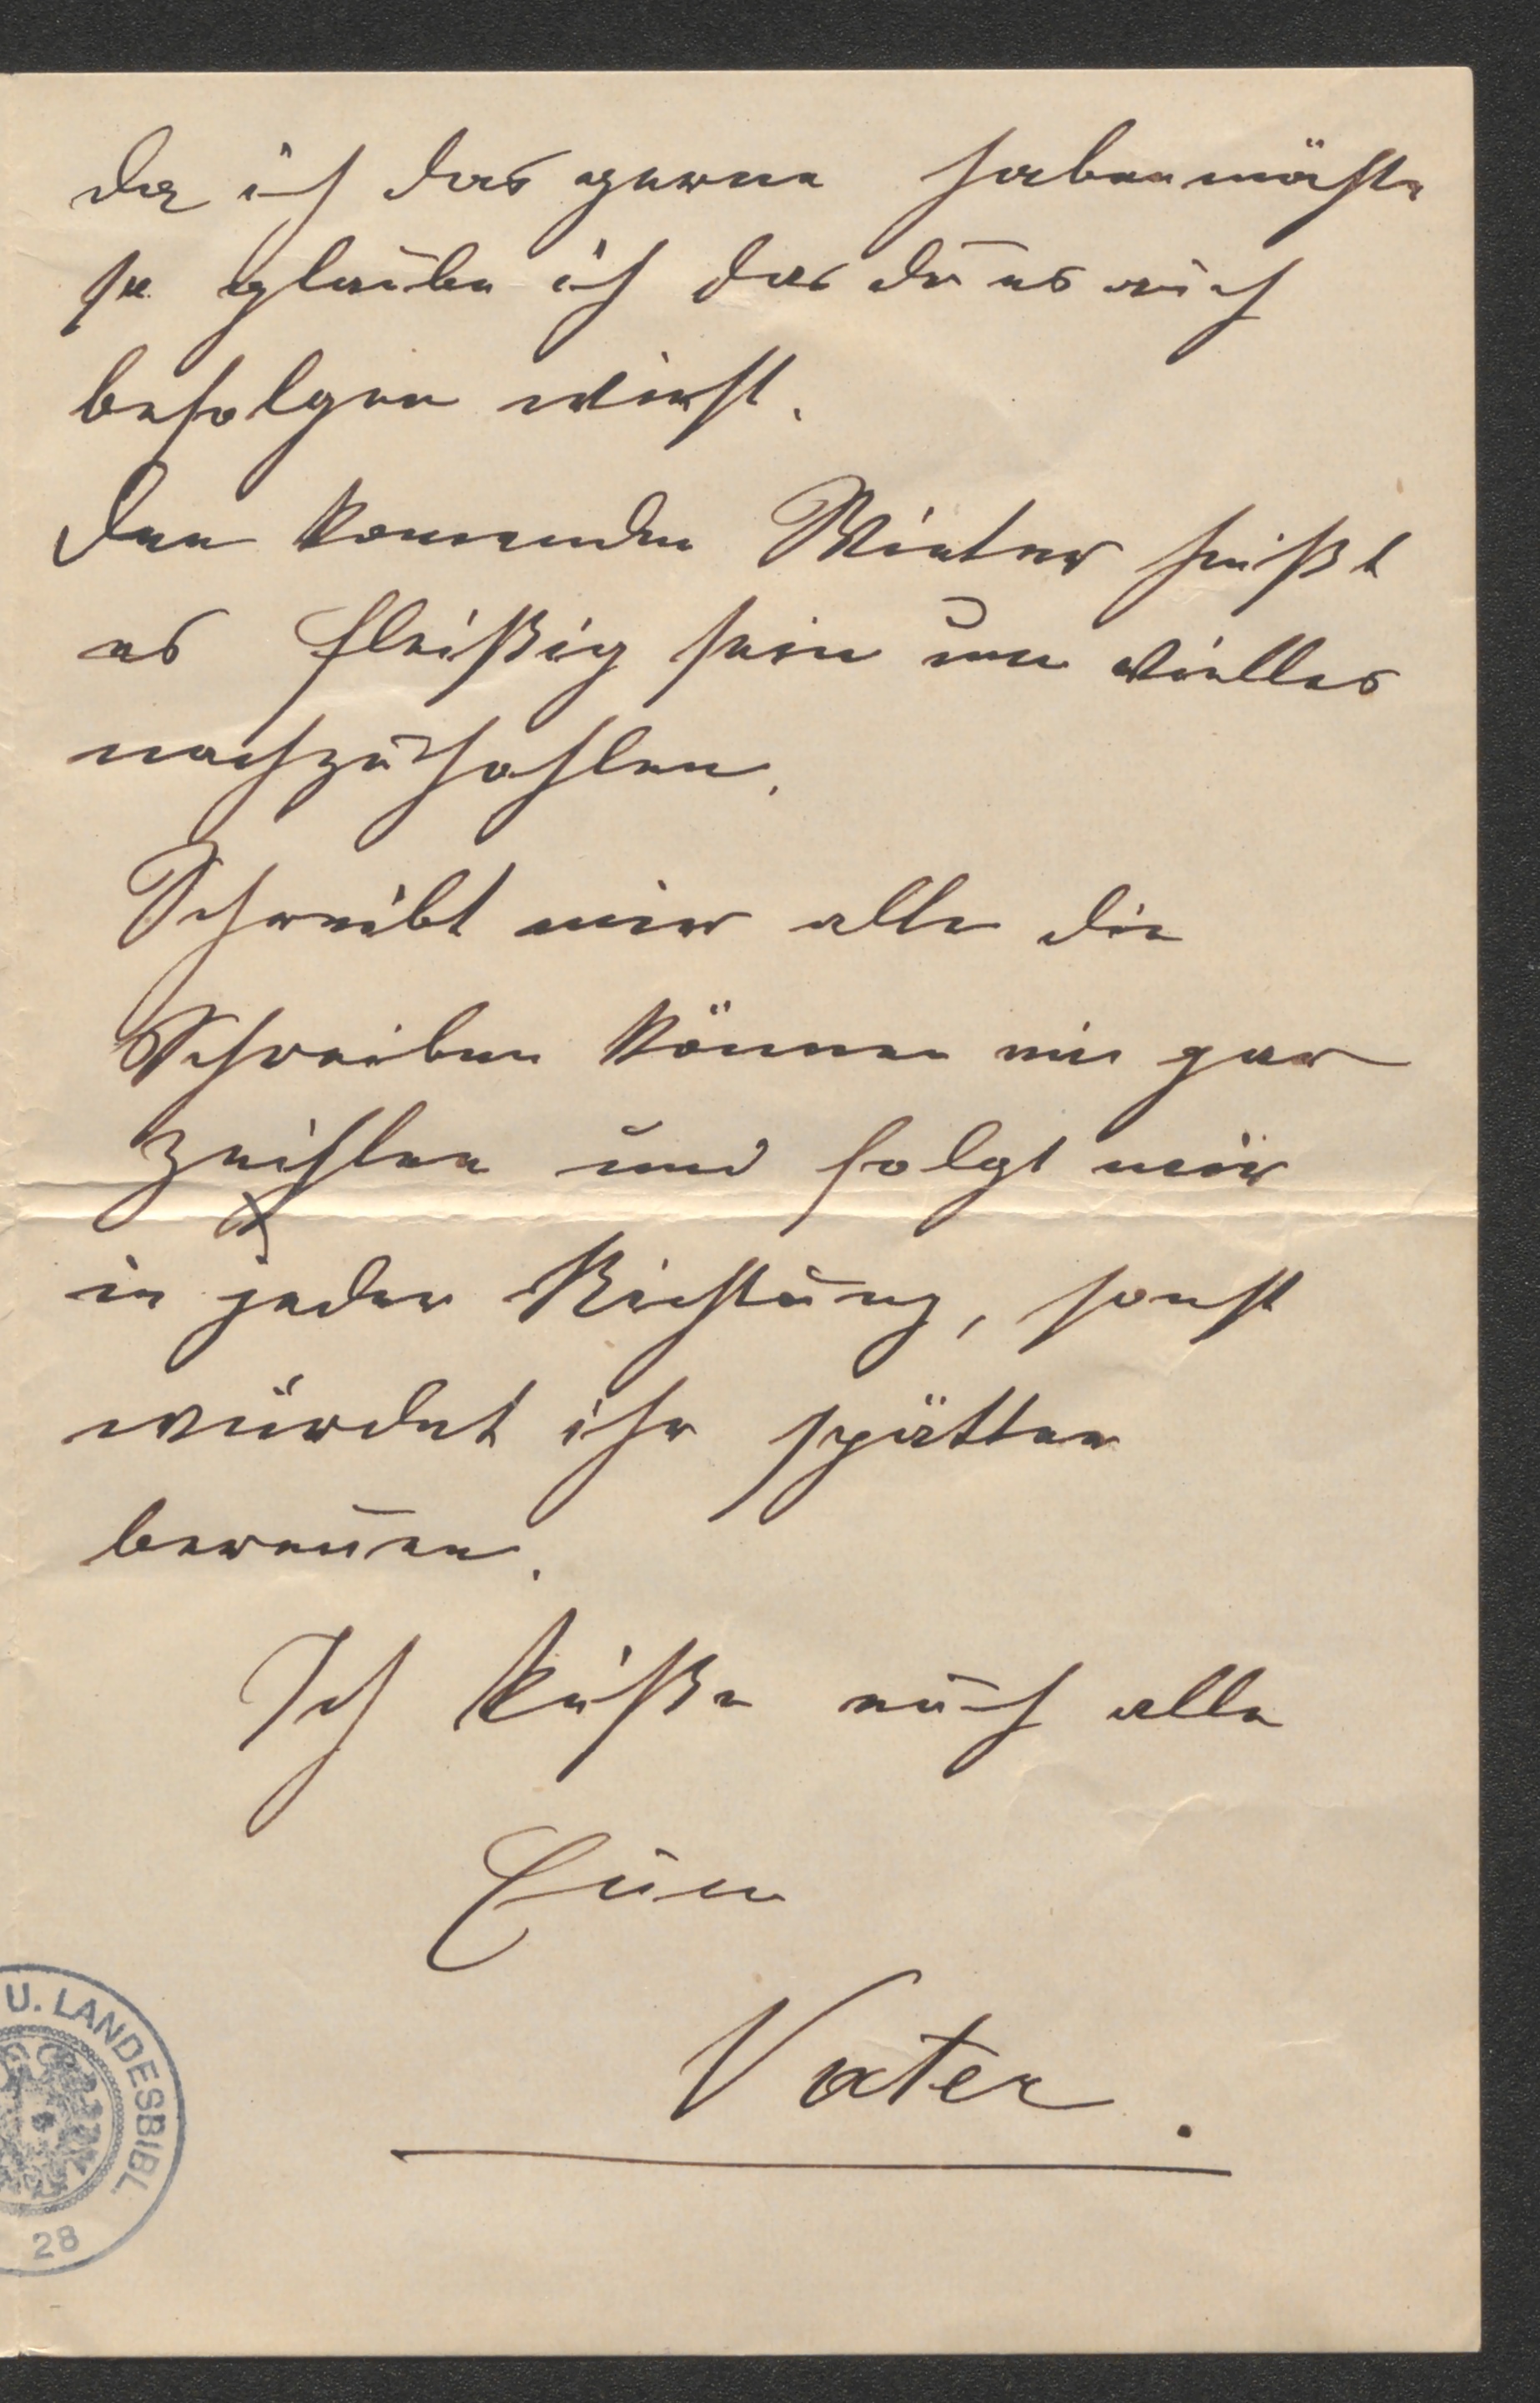 da ich das gerne haben möchte
so glaube ich das du es auch
befolgen wirst.
Den kommenden Winter heißt
es fleißig sein um vielles
nachzuhohlen.
Schreibt mir alle die
Schreiben können nur gar
Zeichlen und folgt mir
in jeder Richtung, sonst
würdet ihr spätter
bereuen.
Ich küße euch alle
Euer
Vater.
U. LANDESBIBL
28